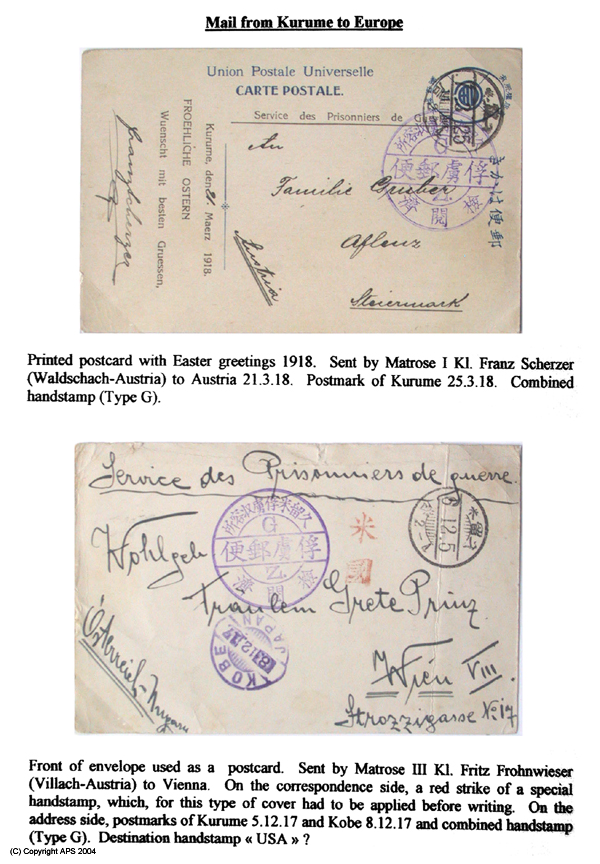 Mail from Kurume to Europe
Union Postale Universelle
CARTE POSTALE.
Service des Prisonniers de
FROEHLICHE OSTERN
Wuenscht mit besten Gruessen,
Kurume, den 21. Maerz 1918.
Franz Scherzer
An
Familie Gruber
Aflenz
Steiermark
Austria
俘虜郵便
検閲
きかは便郵
Printed postcard with Easter greetings 1918. Sent by Matrose I Kl. Franz Scherzer
(Waldschach-Austria) to Austria 21.3.18. Postmark of Kurume 25.3.18. Combined
handstamp (Type G).
Service des Prisonniers de guerre.
久留米俘虜収容所
G
俘虜郵便
検閲
米國
久留米
6.12.5
Wohlgeb
Fräulein Grete Prinz
Wien VIII.
Strozzigasse No 17
Österreich-Ungarn
KOBE
JAPAN
Front of envelope used as a postcard. Sent by Matrose III Kl. Fritz Frohnwieser
(Villach-Austria) to Vienna. On the correspondence side, a red strike of a special
handstamp, which, for this type of cover had to be applied before writing. On the
address side, postmarks of Kurume 5.12.17 and Kobe 8.12.17 and combined handstamp
(Type G). Destination handstamp « USA » ?
(C) Copyright APS 2004